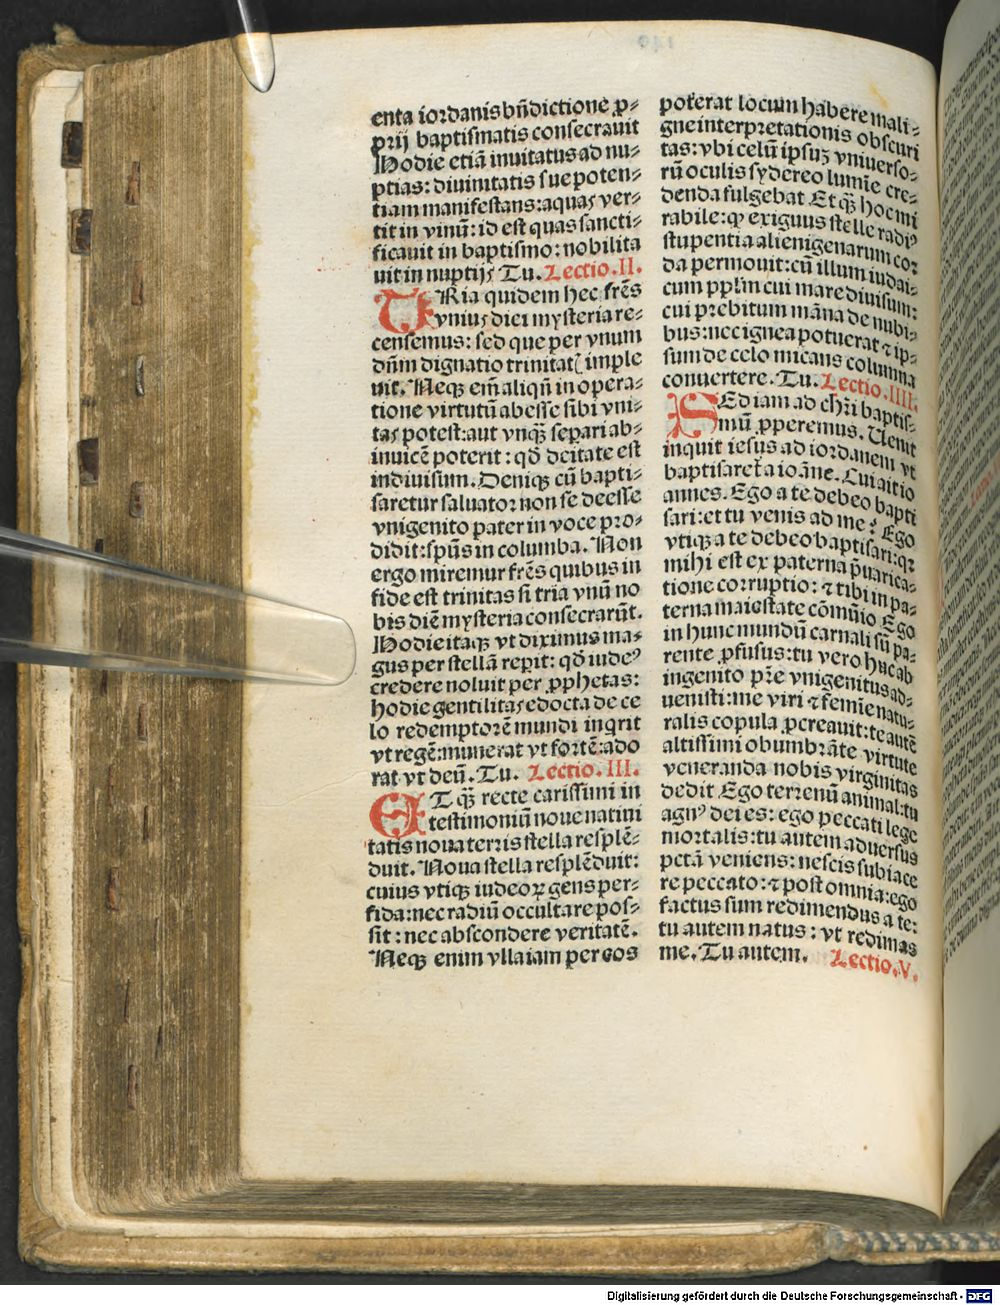 enta iordanis bñdictione ꝓ⸗
prij baptismatis consecrauit
Hodie etiã inuitatus ad nu⸗
ptias: diuinitatis sue poten⸗
tiam manifestans: aquas ver⸗
tit in vinũ: id est quas sancti⸗
ficauit in baptismo: nobilita
uit in nuptijs Tu. Lectio. II.
TRia quidem hec frẽs
vnius diei mysteria re⸗
censemus: sed que per vnum
dñm dignatio trinitat imple
uit. Neqꝫ em̃ aliqñ in opera⸗
tione virtutũ abesse sibi vni⸗
tas potest: aut vnqꝫ̃ separi ab⸗
inuicẽ poterit: qđ deitate est
indiuisum. Deniqꝫ cũ bapti⸗
saretur saluator non se deesse
vnigenito pater in voce pro⸗
didit: sp̃us in columba. Non
ergo miremur frẽs quibus in
fide est trinitas si tria vnũ no
bis diẽ mysteria consecrarũt.
Hodie itaqꝫ vt diximus ma⸗
gus per stellã reperit: qđ iudeꝰ
credere noluit per ꝓphetas:
hodie gentilitas edocta de ce
lo redemptorẽ mundi inqrit
vt regẽ: munerat vt fortẽ: ado
rat vt deũ. Tu. Lectio. III.
ET qꝫ̃ recte carissimi in
testimoniũ noue natiui
tatis noua terris stella resplẽ⸗
duit. Noua stella resplẽduit:
cuius vtiqꝫ iudeoꝝ gens per⸗
fida: nec radiũ occultare pos⸗
sit: nec abscondere veritatẽ.
Neqꝫ enim vlla iam per eos
poterat locum habere mali⸗
gne interpretationis obscuri
tas: vbi celũ ipsuꝫ vniuerso⸗
rũ oculis sydereo lumĩe cre⸗
denda fulgebat Et qꝫ̃ hoc mi
rabile: ꝙ exiguus stelle radiꝰ
stupentia alienigenarum cor
da permouit: cũ illum iudai⸗
cum pplm̃ cui mare diuisum:
cui prebitum mãna de nubi⸗
bus: nec ignea potuerat ⁊ ip⸗
sum de celo micans columna
conuertere. Tu. Lectio. IIII.
SEd iam ad chri baptis⸗
mũ ꝓperemus. Uenit
inquit iesus ad iordanem vt
baptisaret̃ a ioãne. Cui ait io
annes. Ego a te debeo bapti
sari: et tu venis ad me? Ego
vtiqꝫ a te debeo baptisari: qꝛ
mihi est ex paterna p̃uarica⸗
tione corruptio: ⁊ tibi in pa⸗
terna maiestate cõmũio Ego
in hunc mundũ carnali sũ pa⸗
rente ꝓfusus: tu vero huc ab
ingenito pr̃e vnigenitus ad⸗
uenisti: me viri ⁊ femĩe natu⸗
ralis copula ꝓcreauit: te autẽ
altissimi obumbrãte virtute
veneranda nobis virginitas
dedit Ego terrenũ animal: tu
agnꝰ dei es: ego peccati lege
mortalis: tu autem aduersus
pctã veniens: nescis subiace
re peccato: ⁊ post omnia: ego
factus sum redimendus a te:
tu autem natus: vt redimas
me. Tu autem. Lectio. V.
Digitalisierung gefördert durch die Deutsche Forschungsgemeinschaft - DFG